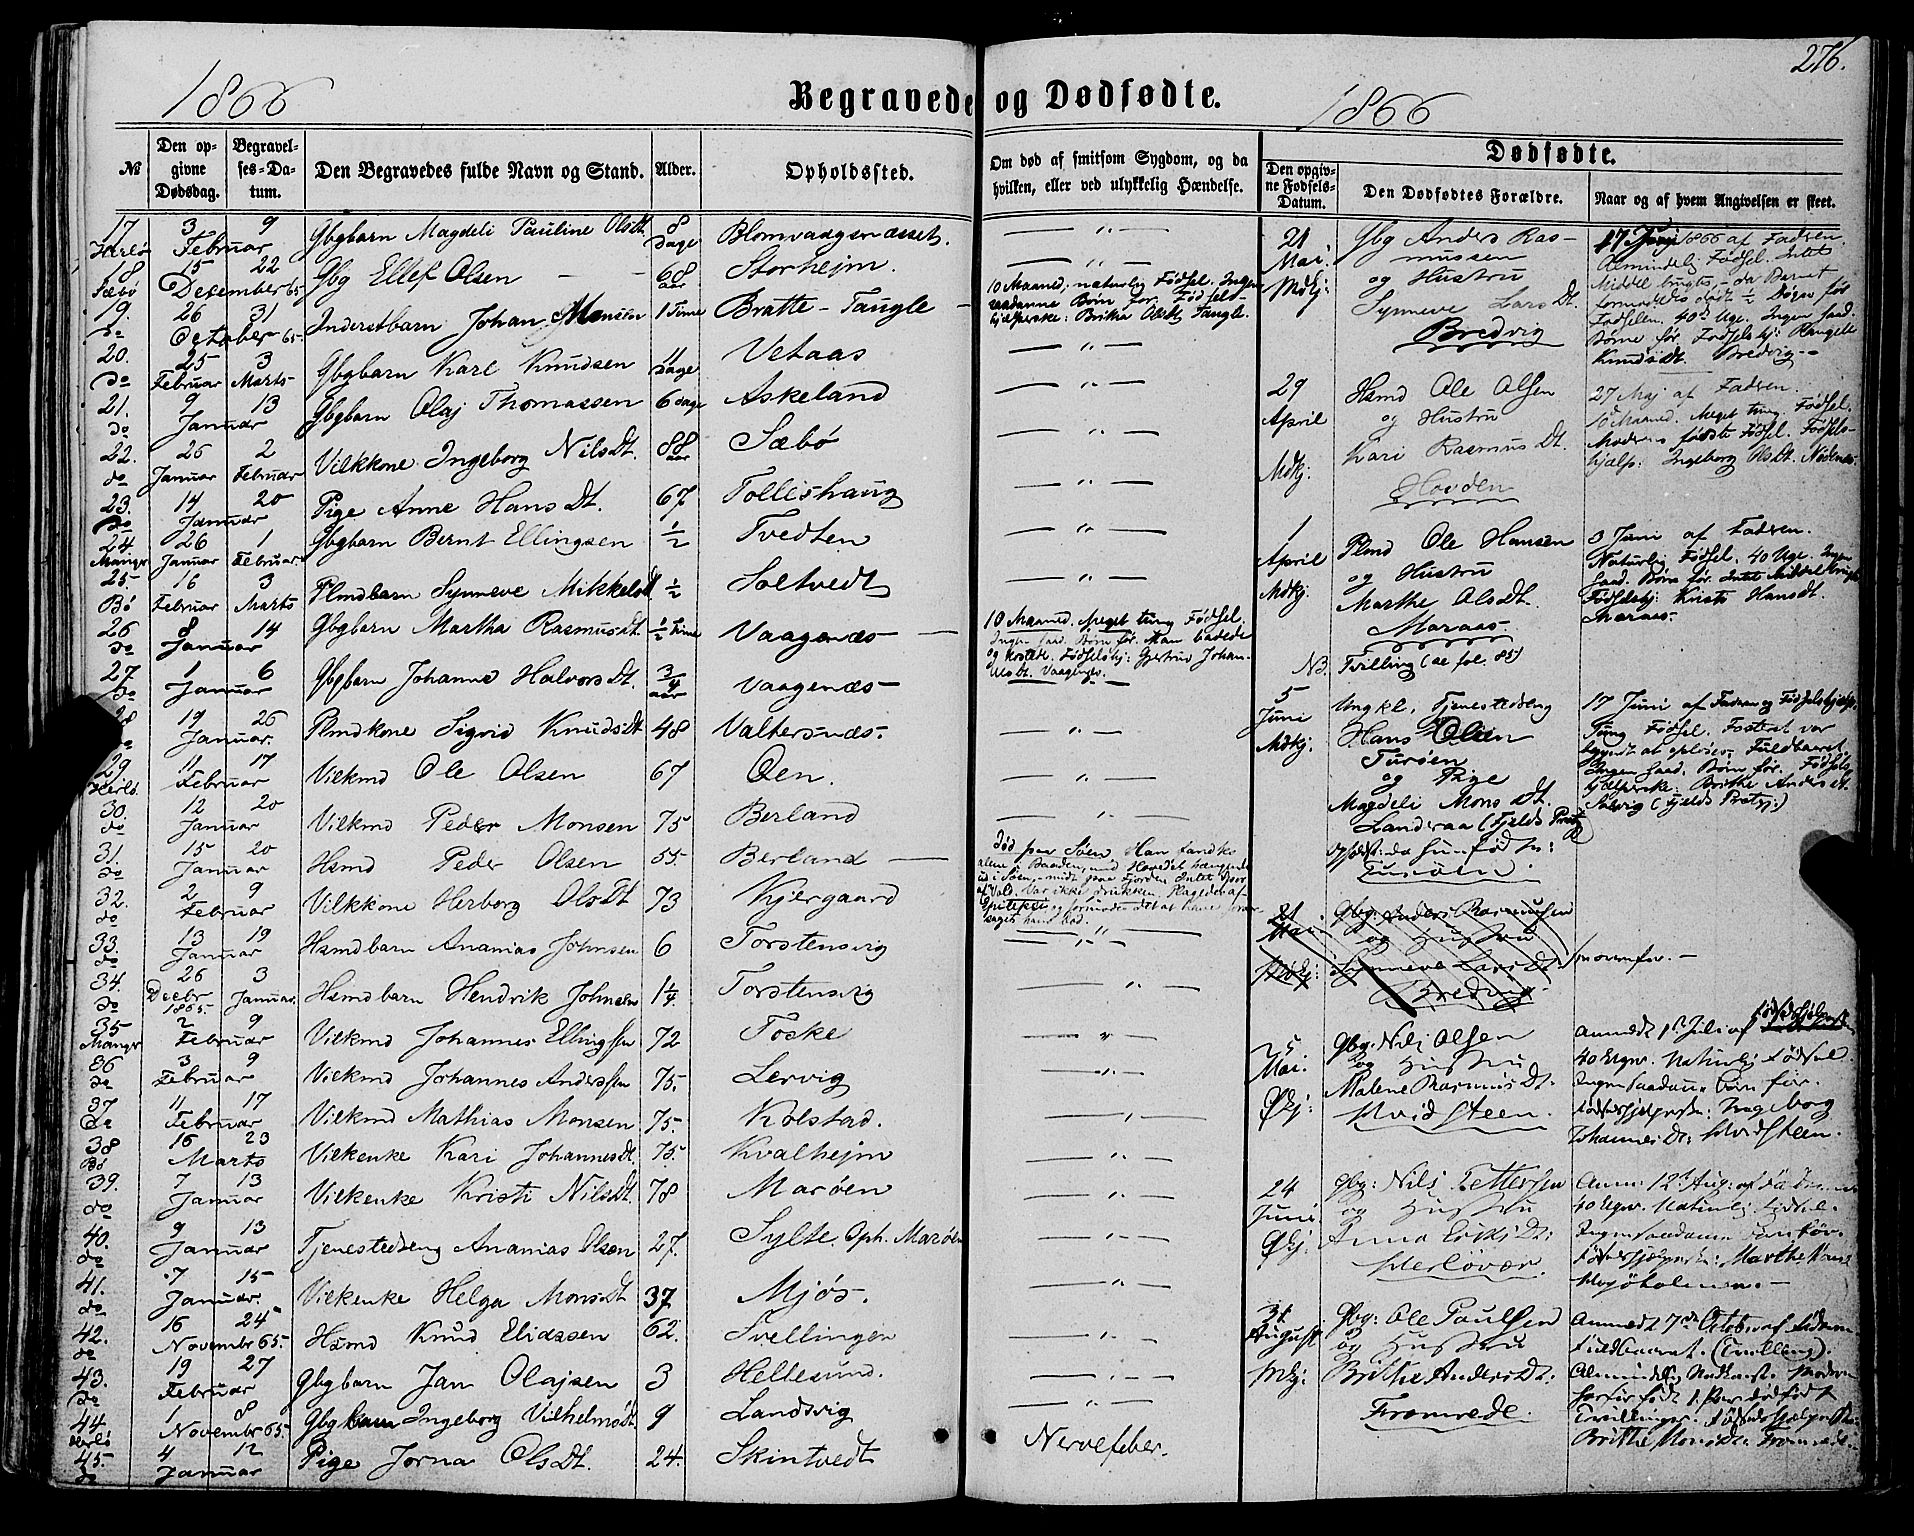 276.
1866
Begravede og Dødfødte.
1866
No
Den opgivne Dødsdag.
Begravelses-Datum.
Den Begravedes fulde Navn og Stand.
Alder.
Opholdssted.
Om død af smitsom Sygdom, og da hvilken, eller ved ulykkelig Hændelse.
Dødfødte.
Den opgivne Fødsels-Datum.
Den Dødfødtes Forældre.
Naar og af hvem Angivelsen er skeet.
17 Herlø 3 9 Februar Gbgbarn Magdeli Pauline Olsdt. 8 Dage Blomvaagsnæsset. — " —
18 Sæbø 15 22 Desember 65 Gbg Ellef Olsen — — 68 aar Storhejm. — " —
19. do 26 31 October 65. Inderstbarn Johan Monsen 1 Time Bratte-Tangle — 10 Maaned, naturlig Fødsel. Ingen saadanne Børn før. Fødselshjelperske: Brithe Olsdt. Tangle.
20. do 25 Februar 3 Marts Gbgbarn Karl Knudsen 11 Dage Vetaas — " —
21. do 9 13 Januar Gbgbarn Olaj Thomassen 6 dage Askeland — " —
22. do 26 Januar 2 Februar Vilkkone Ingeborg Nilsdt. 88 aar Sæbø — " —
23. do 14 20 Januar Pige Anne Hansdt. 67 Tolleshaug — " —
24 Manger 26 Januar 1 Februar. Gbgbarn Bernt Ellingsen ½ Tvedten — " —
25 Bø 16 Februar 3 Marts Plmdbarn Synneve Mikkelsdt ½ Soltvedt — " —
26 do 8 14 Januar Gbgbarn Martha Rasmusdt. ½ Time Vaagenæs — 10 Maaned. Meget tung Fødsel. Ingen saad. Børn før. Man badede og Fødselshj: Gjertrud Johannesdt. Vaagenes.
27. do 1 6 Januar Gbgbarn Johanne Halvorsdt. ¾ aar Vaagenæs — " —
28 do 19 26 Januar. Plmdkone Sigrid Knudsdt 48 Valtersnæs. — " —
29 Herlø. 11 17 Februar Vilkmd Ole Olsen 67 Oen. — " —
30. do 12 20 Januar Vilkmd Peder Monsen 75 Berland — " —
31. do 15 20 Januar Hsmd Peder Olsen 55. Berland — Død paa Søen. Han fandtes alene i Baaden, med Hovedet hængende ud i Søen, midt paa Fjorden. Intet Spor af Vold. Var ikke drukken. Plagedes af Epilepsi og formodes det at have foraarsaget hans Død.
32. do 2 9 Februar Vilkkone Herborg Olsdt 73 Kjergaard
33. do 13 19 Januar Hsmdbarn Ananias Johnsen 6 Torstensvig — " —
34. do 26 Decbr 1865. 3 Januar. Hsmdbarn Hendrik Johnsen 1¼ Torstensvig — " —
35 Manger 2 9 Februar Vilkmd Johannes Ellingsen 72 Toske — " —
36 do 3 9 Februar Vilkmd Johannes Anderssen 75. Lervig — " —
37 do 11 17 Februar Vilkmd Mathias Monsen 75. Kolstad. — " —
38 Bø 16 23 Marts Vilkenke Kari Johannesdt. 75. Kvalhejm — " —
39. do 7 13 Januar Vilkenke Kristi Nilsdt. 78 Marøen — " —
40. do 9 13 Januar Tjenestedreng Ananias Olsen 27. Sylte. Oph. Marøen — " —
41. do 7 15 Januar. Vilkenke Helga Monsdt 37 Mjøs. — " —
42. do 16 24 Novembr 65. Hsmd Knud Eliassen 62. Svellingen — " —
43. do 19 27 Februar Gbgbarn Jan Olajsen 3 Hellesund. — " —
44 Herlø 1 8 Novembr 65. Gbgbarn Ingeborg Vilhelmsdt 9 Landsvig — " —
45. do 4 12 Januar Pige Jorna Olsdt. 24. Skintvedt Nervefeber.
21 Mai. Mdkj: Gbg Anders Rasmussen og Hustru Synneve Larsdt. Bredvig
17 Juni 1866 af Fadren. Almindelig Fødsel. Intet Middel brugt, da Barnet formodedes dødt ½ Døgn før Fødselen. 40de Uge. Ingen saad. Børn før. Fødselshj. Knudsdt. Bredvig.
29 April Mdkj: Hsmd Ole Olsen og Hustru Kari Rasmusdt. Hovden
27 Maj af Fadren. 10 Maaned. Meget tung Fødsel. Modrens første Fødsel. Fødselshjælp: Ingeborg Olsdt. Nødenes.
1 April Mdkj. Plmd Ole Hansen og Hustru Marthe Olsdt. Maraas
3 Juni af Fadren. Naturlig Fødsel. 40 Uge. Ingen saad. Børn før. Intet Middel brugt. Fødselshj. Kristi Hansdt. Maraas.
NB. Tvilling (se fol. 85)
5 Juni Mdkj: Ungkl. Tjenestedreng Hans Olsen Turøen og Pige Magdeli Monsdt. Landraa (Fjelds Prstgj) Turøen
17 Juni af Fadren og Fødselshjælp. Tung Fødsel. Fosteret var begyndt at opløses. Fuldbaaret. Ingen saad. Børn før. Fødselshjælperske: Brithe Andersdt. Solvig (Fjelds Prstgj.)
21 Mai Mdkj: Gbg: Anders Rasmussen og Hustru Synneve Larsdt. Bredvig
ovenfor. —
25 Mai. Qkj: Gbg. Nils Olsen og Hustru Malene Rasmusdt. Hvidsteen.
Anmeldt 1st Juli af Fødselshjelpersken 40 Uger. Naturlig Fødsel. Ingen saadanne Børn før. Fødselshjelperske: Ingeborg Johannesdt: Hvidsteen.
24 Juni. Qkj. Gbg: Nils Pettersen og Hustru Anna Eriksdt: Herløvær.
Anm: 12t Aug: af Fadren 40 Uger. Naturlig Fødsel. Ingen saadanne Børn før. Fødselshjelperske: Marthe
31 August Mkj: Gbg: Ole Paulsen og Hustru Brithe Andersdt: Fromrede.
Anmeldt 7de Octob. af Fadren Fuldbaaret. (Tvilling). Almindelig Moderen forhen født 1 Par dødfødte Tvillinger. Fødselshjelperske: Brithe Monsdt: Fromrede.